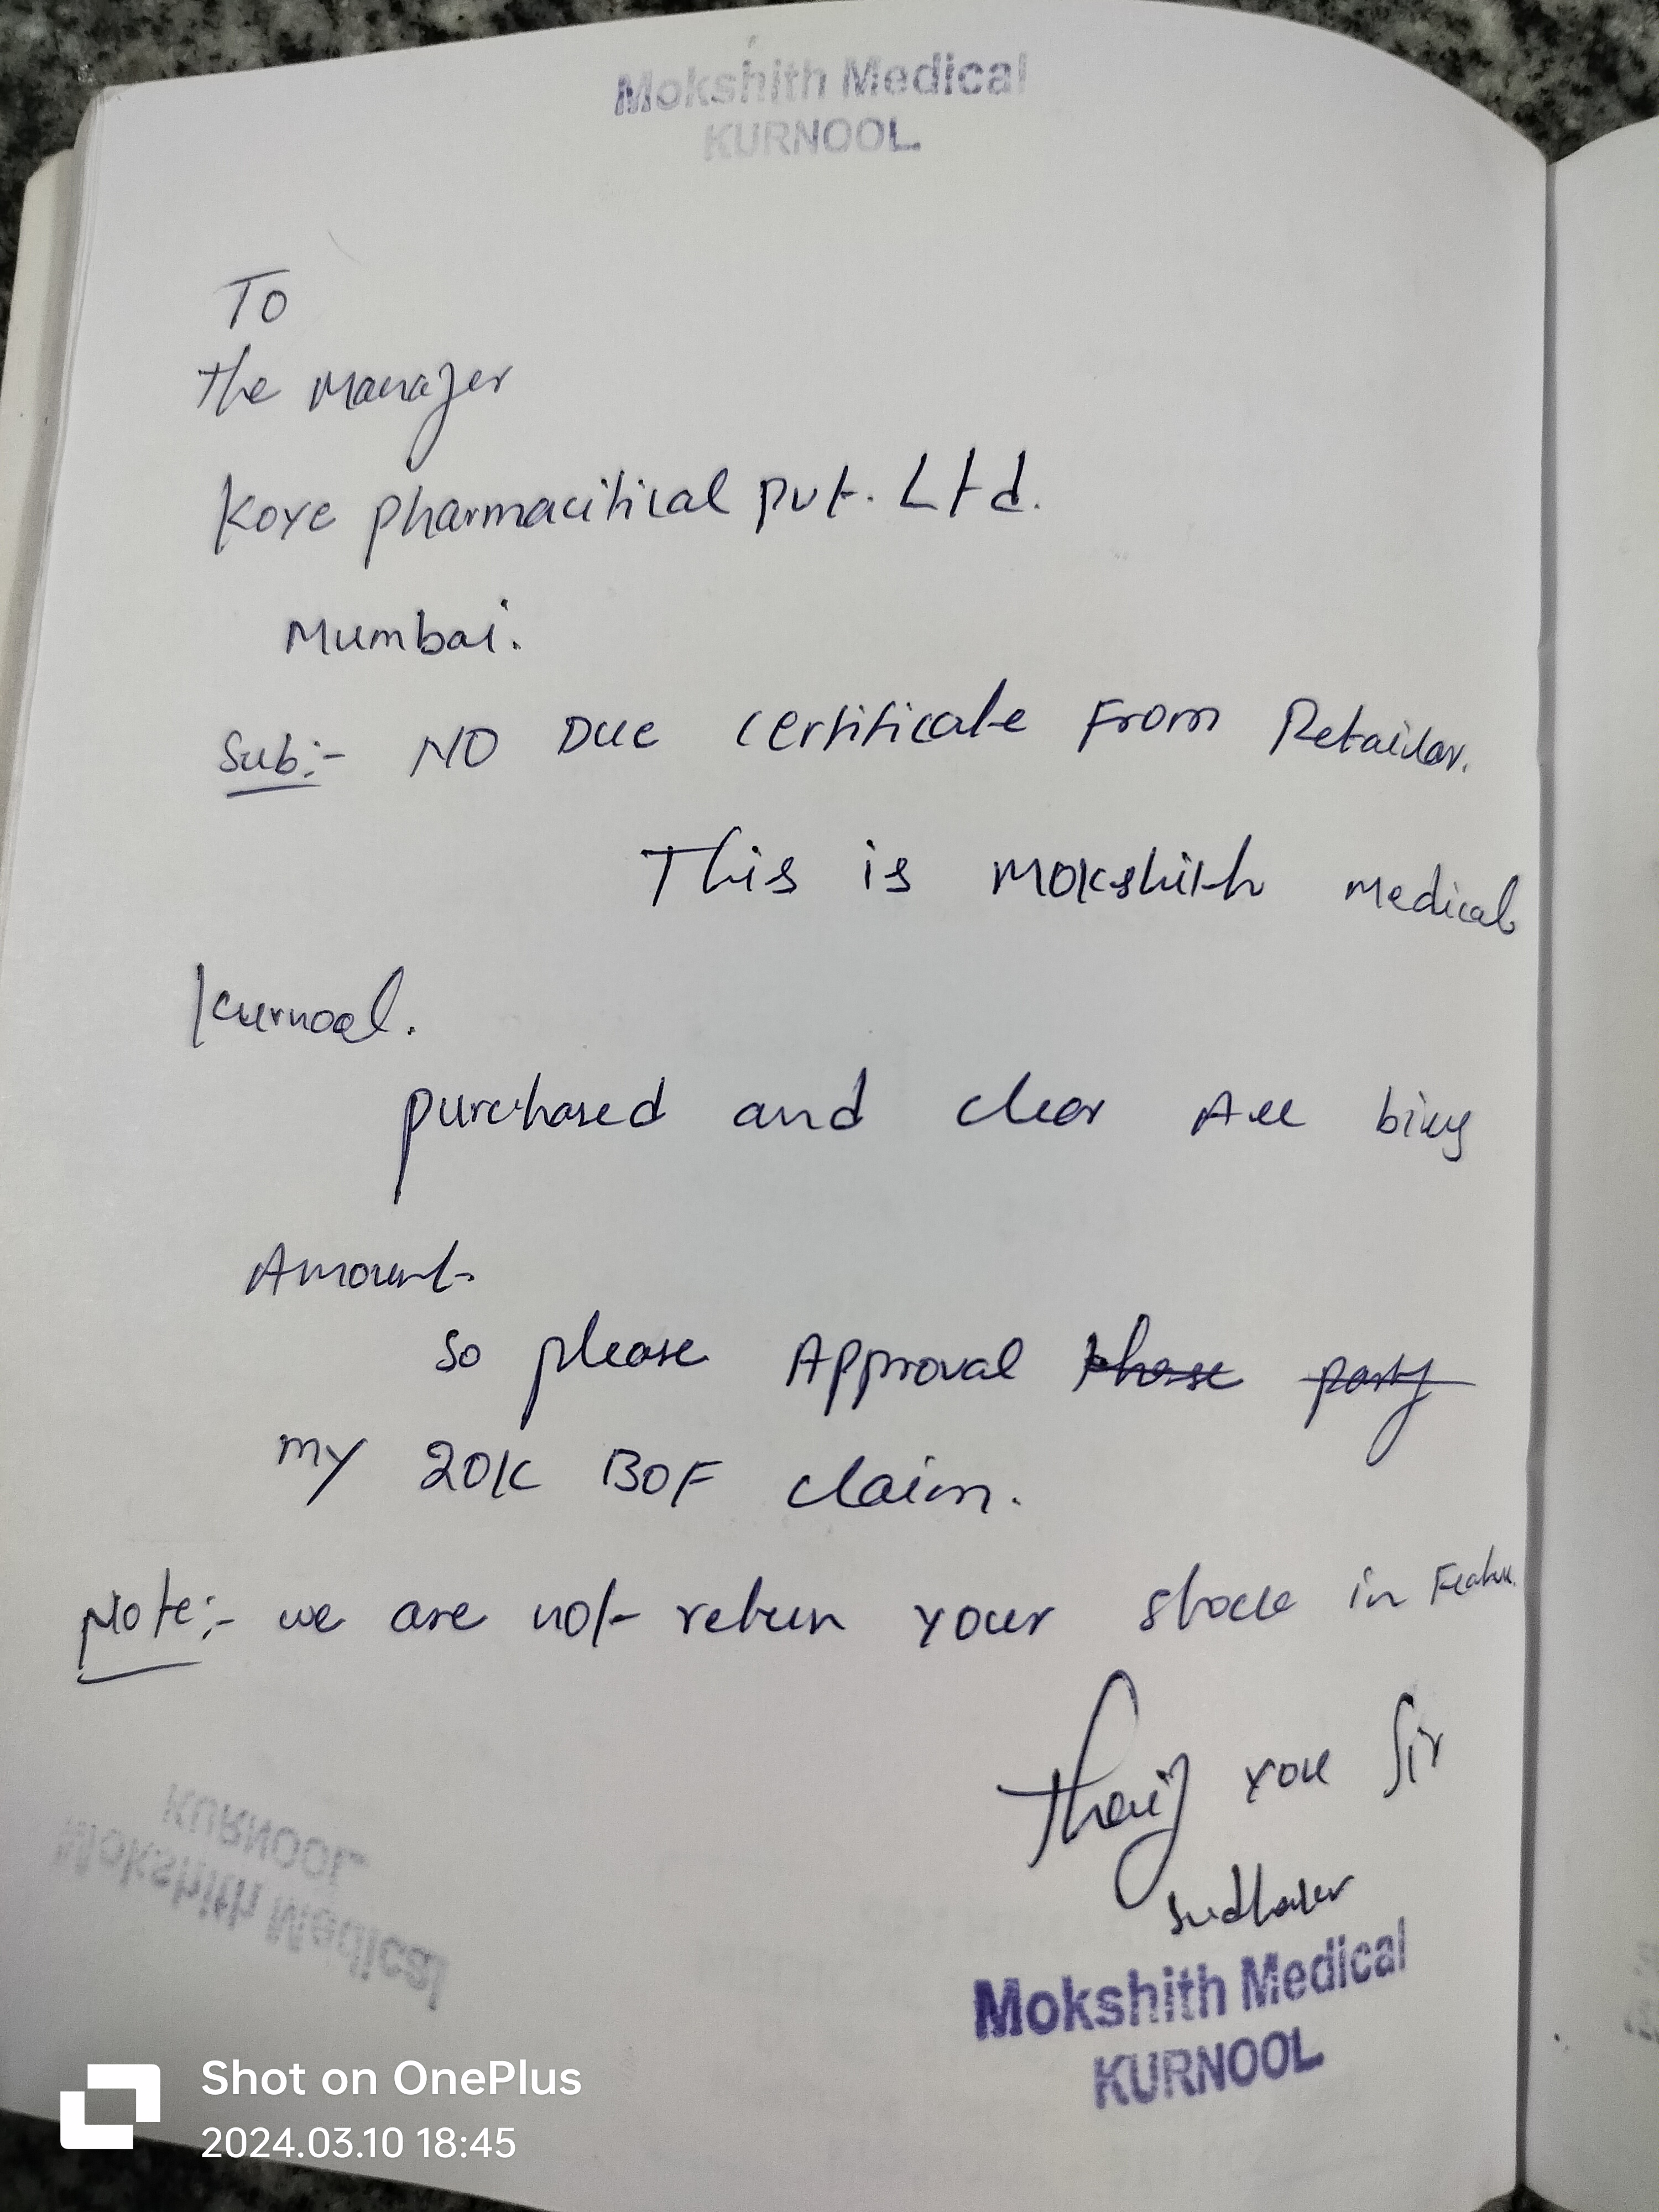 Mokshith Medical
KURNOOL
To
the Manager
Koye pharmacitical pvt. Ltd.
Mumbai.
Sub:- NO Due certificate From Retailor.
This is Mokshith Medical
Kurnool.
purchased and clear All bills
Amount.
so please Approval those party
my 20K BOF claim.
Note:- we are not return your stock in
you Sir
Sudhaker
Mokshith Medical
KURNOOL
KURNOOL
Mokshith Medical
Shot on OnePlus
2024.03.10 18:45